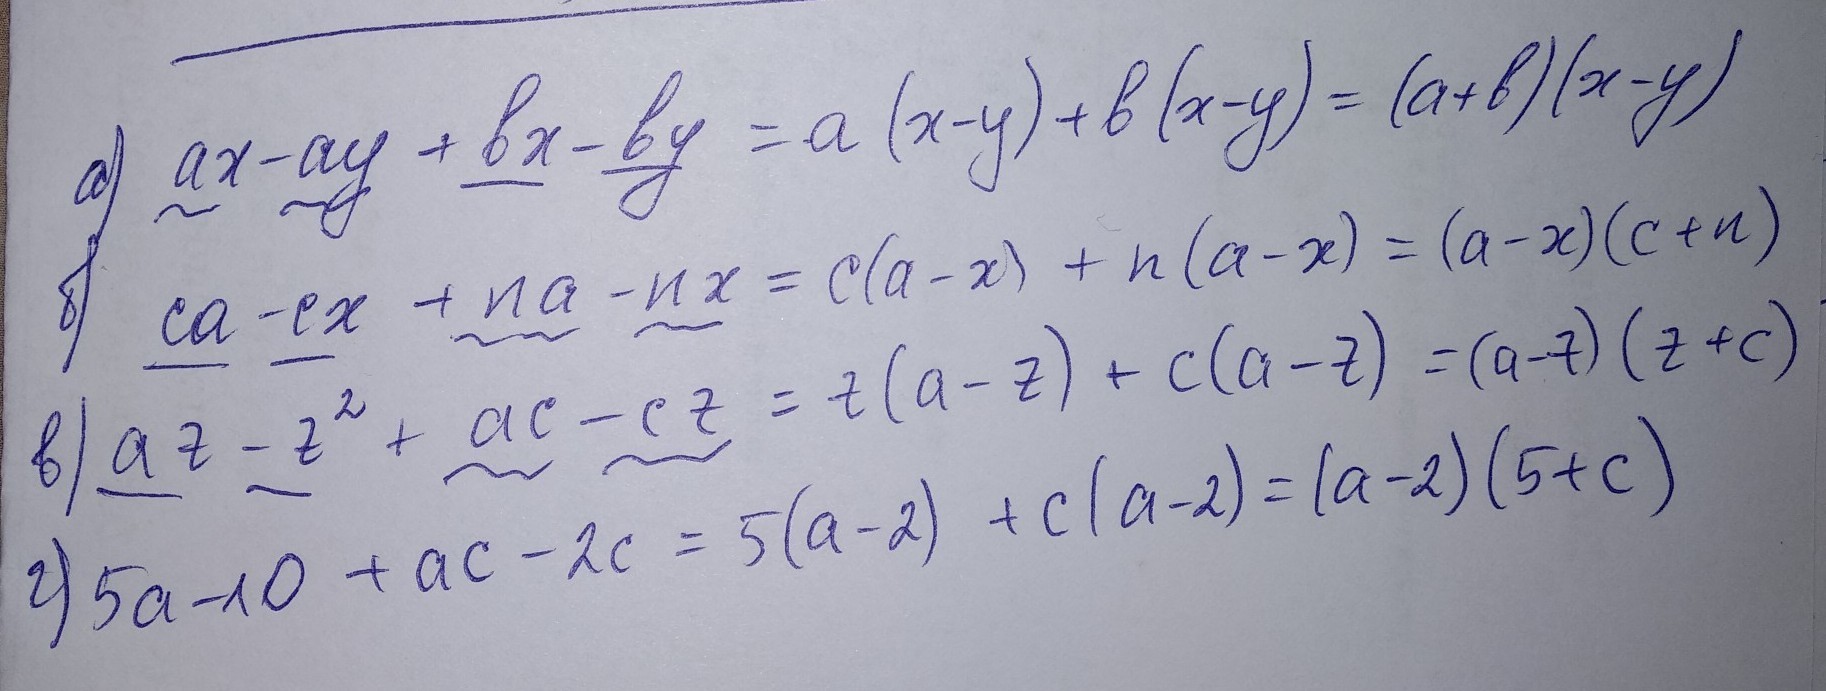 а) ax - ay + bx - by = a (x-y) + b (x-y) = (a+b)(x-y)
б) ca - cx + na - nx = c(a-x) + n(a-x) = (a-x)(c+n)
в) az - z² + ac - cz = z(a-z) + c(a-z) = (a-z)(z+c)
г) 5a-10 + ac - 2c = 5(a-2) + c(a-2) = (a-2)(5+c)